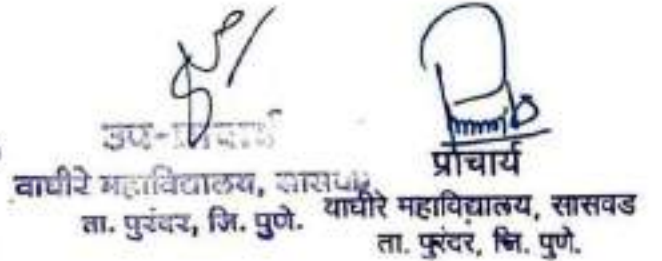 उप-प्राचार्य
वाघीरे महाविद्यालय, सासवड
ता. पुरंदर, जि. पुणे.
प्राचार्य
वाघीरे महाविद्यालय, सासवड
ता. पुरंदर, जि. पुणे.